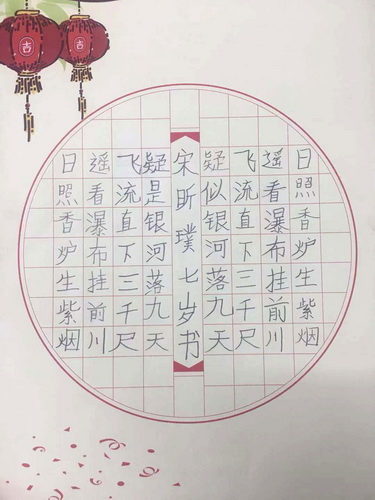 吉
吉
日照香炉生紫烟
遥看瀑布挂前川
飞流直下三千尺
疑似银河落九天
宋昕璞七岁书
日照香炉生紫烟
遥看瀑布挂前川
飞流直下三千尺
疑是银河落九天